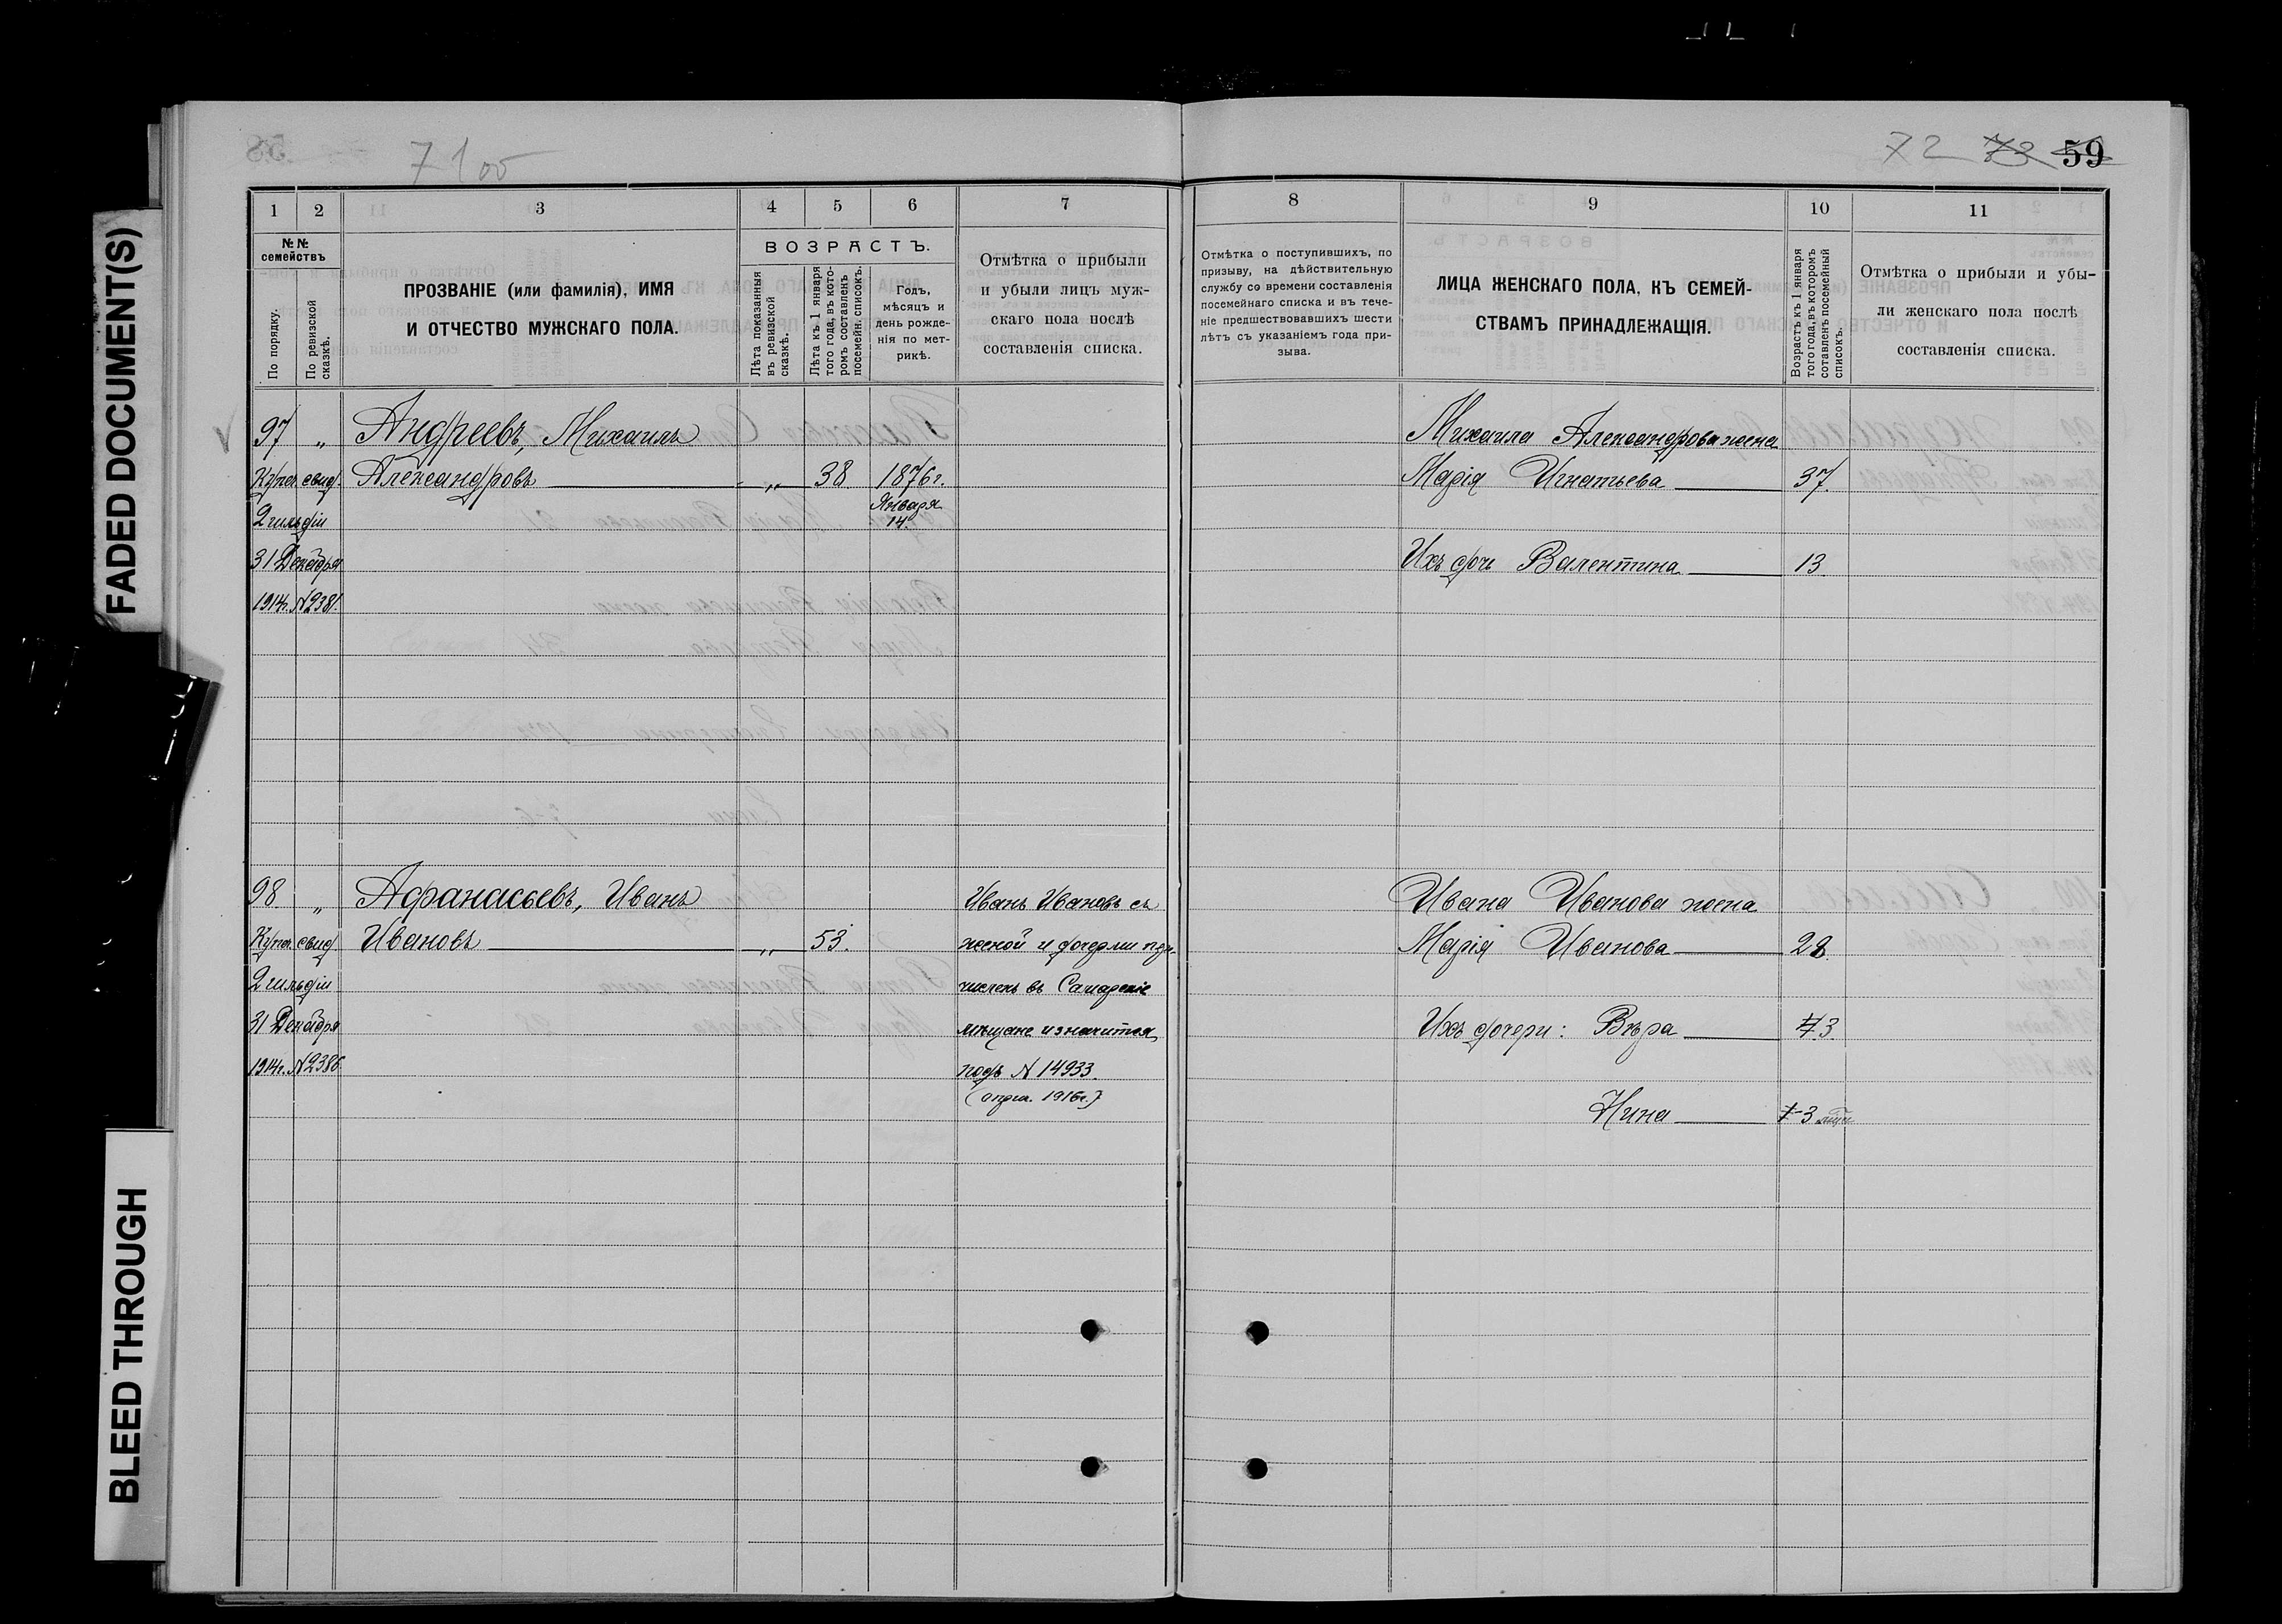 FADED DOCUMENT(S)
BLEED THROUGH
71 об
72 73 59
1 2 3 4 5 6 7
№ №
семействъ
По порядку.
По ревизской
сказкѣ.
ПРОЗВАНІЕ (или фамилія), ИМЯ
И ОТЧЕСТВО МУЖСКАГО ПОЛА.
ВОЗРАСТЪ.
Лѣта показанныя
въ ревизской
сказкѣ.
Лѣта къ 1 января
того года, въ кото-
ромъ составленъ
посемейн. списокъ.
Годъ,
мѣсяцъ и
день рожде-
нія по мет-
рикѣ.
Отмѣтка о прибыли
и убыли лицъ муж-
скаго пола послѣ
составленія списка.
97 „ Андреевъ, Михаилъ
Купеч. свид. Александровъ „ 38 1876 г.
Января
14.
2 гильдіи
31 Декабря
1914г. № 2381.
98 „ Афанасьевъ, Иванъ
Купеч. свид. Ивановъ „ 53.
2 гильдіи
31 Декабря
1914г. № 2386.
Иванъ Ивановъ съ
женой и дочерьми при-
численъ въ Самарскіе
мѣщане и значится
подъ № 14933.
1916г.)
8 9 10 11
Отмѣтка о поступившихъ, по
призыву, на дѣйствительную
службу со времени составленія
посемейнаго списка и въ тече-
ніе предшествовавшихъ шести
лѣтъ съ указаніемъ года при-
зыва.
ЛИЦА ЖЕНСКАГО ПОЛА, КЪ СЕМЕЙ-
СТВАМЪ ПРИНАДЛЕЖАЩІЯ.
Возрастъ къ 1 января
того года, въ которомъ
сотавленъ посемейный
списокъ.
Отмѣтка о прибыли и убы-
ли женскаго пола послѣ
составленія списка.
Михаила Александрова жена
Марія Игнатьева 37.
Ихъ дочь Валентина 13.
Ивана Иванова жена
Марія Иванова 28.
Ихъ дочери: Вѣра 3.
Нина 3